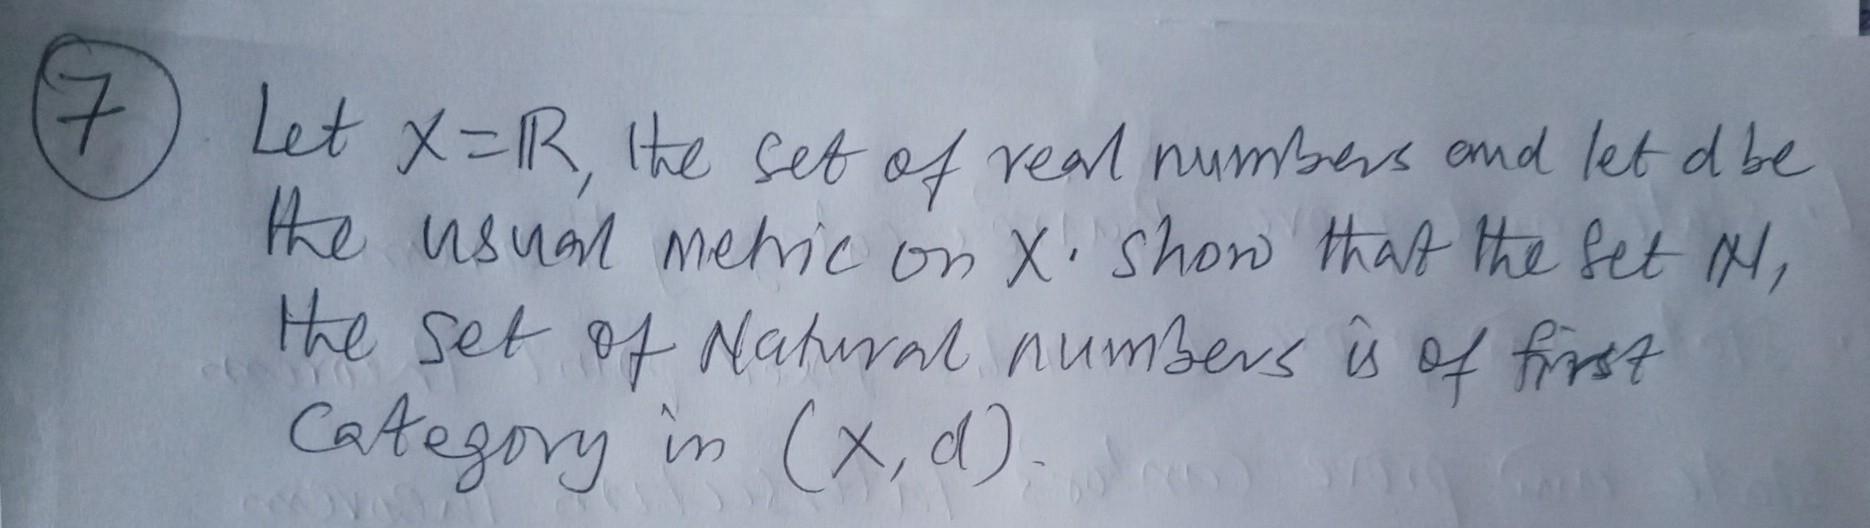 7 Let X=ℝ, the set of real numbers and let d be
the usual metric on X. Show that the set ℕ,
the set of Natural numbers is of first
Category in (X, d).